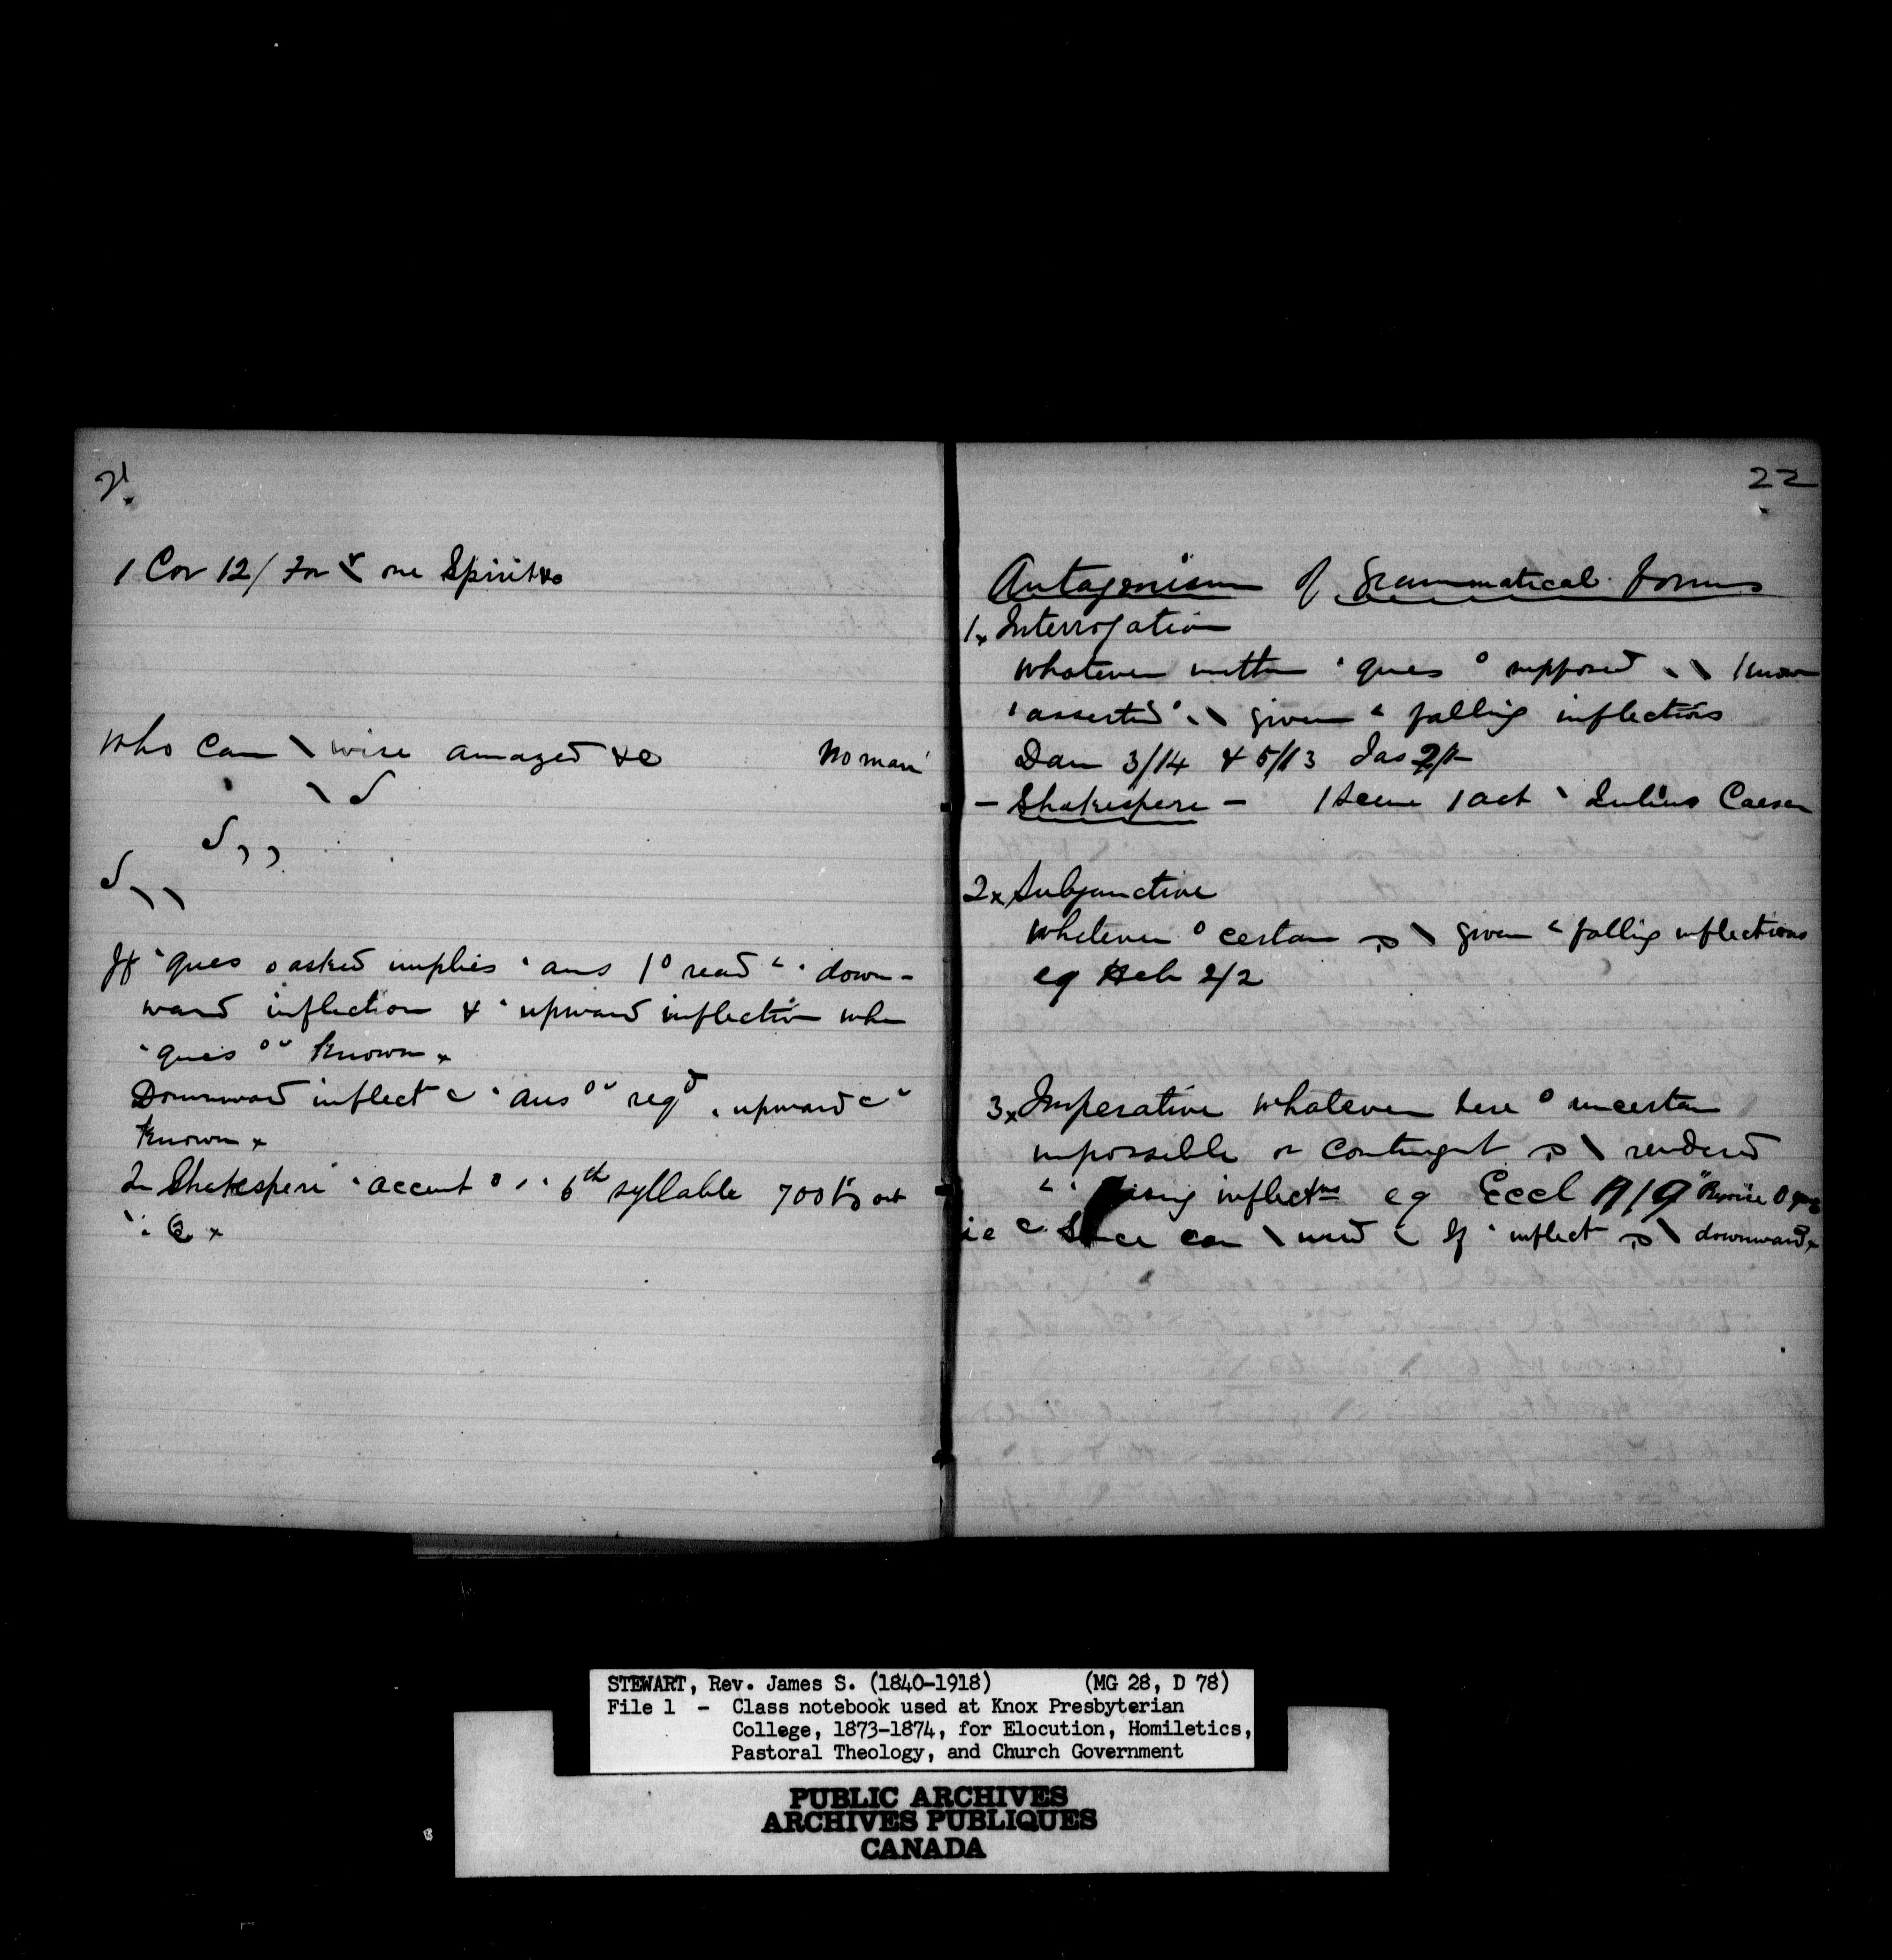 21
1 Cor 12/ For one Spirit &c
Who can \ wise amazed &c No man
If ques asked implies ans read down-
ward inflection & upward inflection when
ques known
Downward inflect ans reqd upward
known
In Shakespere accent 6th syllable 700 out
22
Antagonism of Grammatical forms
1x Interrogation
Whatever ques supposed \ known
asserted \ given falling inflections
Dan 3/14 & 5/13 Jas 2/
- Shakespere - 1 Scene 1 act Julius Caesar
2x Subjunctive
Whatever certain \ given falling inflections
eg Heb 2/2
3x Imperative Whatever here uncertain
impossible or contingent \ rendered
rising inflectns eg Eccl 11/9 "Rejoice O
ie Since can \ used If inflect \ downward
STEWART, Rev. James S. (1840-1918) (MG 28, D 78)
File 1 - Class notebook used at Knox Presbyterian
College, 1873-1874, for Elocution, Homiletics,
Pastoral Theology, and Church Government
PUBLIC ARCHIVES
ARCHIVES PUBLIQUES
CANADA